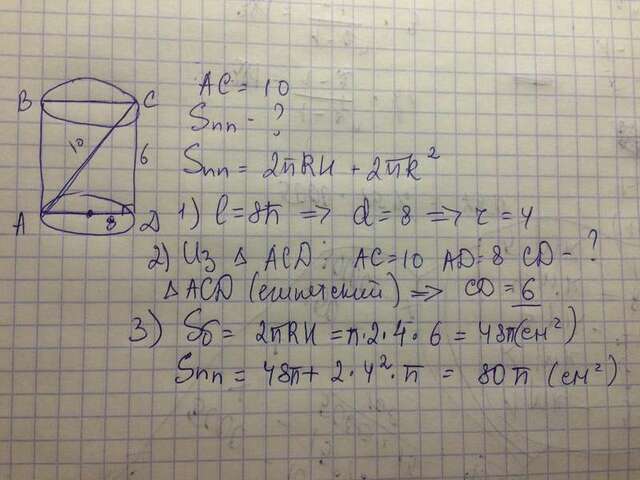 B C
10 6
A 8 D
AC = 10
Sпп - ?
Sпп = 2πRH + 2πR²
1) l = 8π => d = 8 => r = 4
2) Из △ ACD: AC=10 AD=8 CD - ?
△ ACD (египетский) => CD = 6
3) Sб = 2πRH = π·2·4·6 = 48π(см²)
Sпп = 48π + 2·4²·π = 80π (см²)